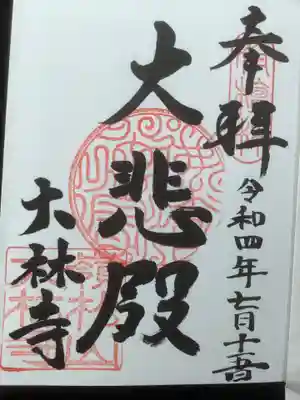 奉拝
令和四年七月十五日
大悲殿
大林寺